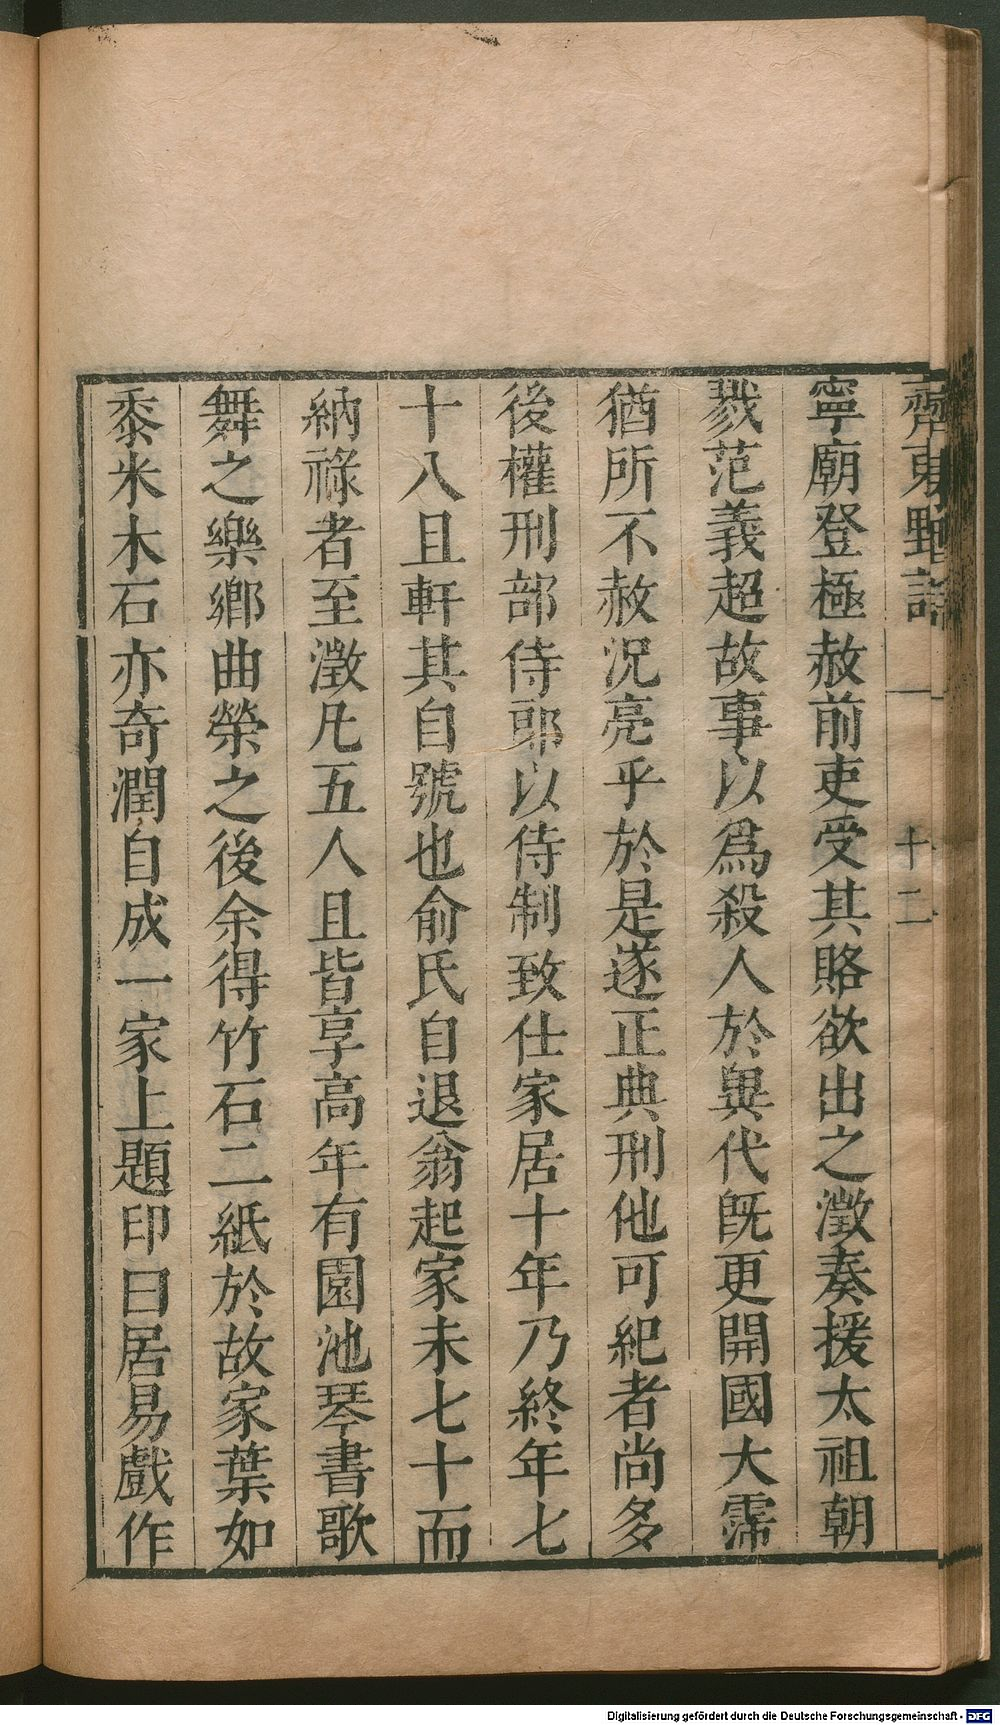 齊東野語 一 十二
寧廟登極赦前吏受其賂欲出之澂奏援太祖朝
戮范義超故事以為殺人於異代既更開國大霈
猶所不赦況亮乎於是遂正典刑他可紀者尚多
後權刑部侍郎以侍制致仕家居十年乃終年七
十八且軒其自號也俞氏自退翁起家未七十而
納祿者至澂凡五人且皆享高年有園池琴書歌
舞之樂鄉曲榮之後余得竹石二紙於故家葉如
黍米木石亦奇潤自成一家上題印曰居易戲作
Digitalisierung gefördert durch die Deutsche Forschungsgemeinschaft - DFG